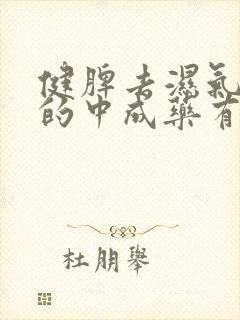 健脾去濕氣
的中成藥有
杜朋舉